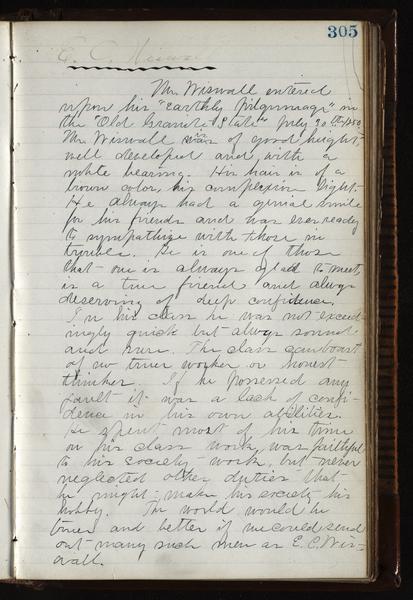 305
E. C. Wiswall
Mr. Wiswall entered
upon his "earthly pilgrimage" in
the "Old Granite State" July 30th, 1850
Mr. Wiswall is of good height,
well developed and with a
noble bearing. His hair is of a
brown color, his complexion light.
He always had a genial smile
for his friends and was ever ready
to sympathize with those in
trouble. He is one of those
that one is always glad to meet,
is a true friend and always
deserving of deep confidence.
In his class he was not exceed-
ingly quick but always sound
and sure. The class can boast
of no truer worker or honest
thinker. If he possessed any
fault it was a lack of confi-
dence in his own abilities.
He spent most of his time
on his class work, was faithful
to his society work, but never
neglected other duties that
he might make his society his
hobby. The world would be
truer and better if we could send
out many such men as E. C. Wis-
wall.